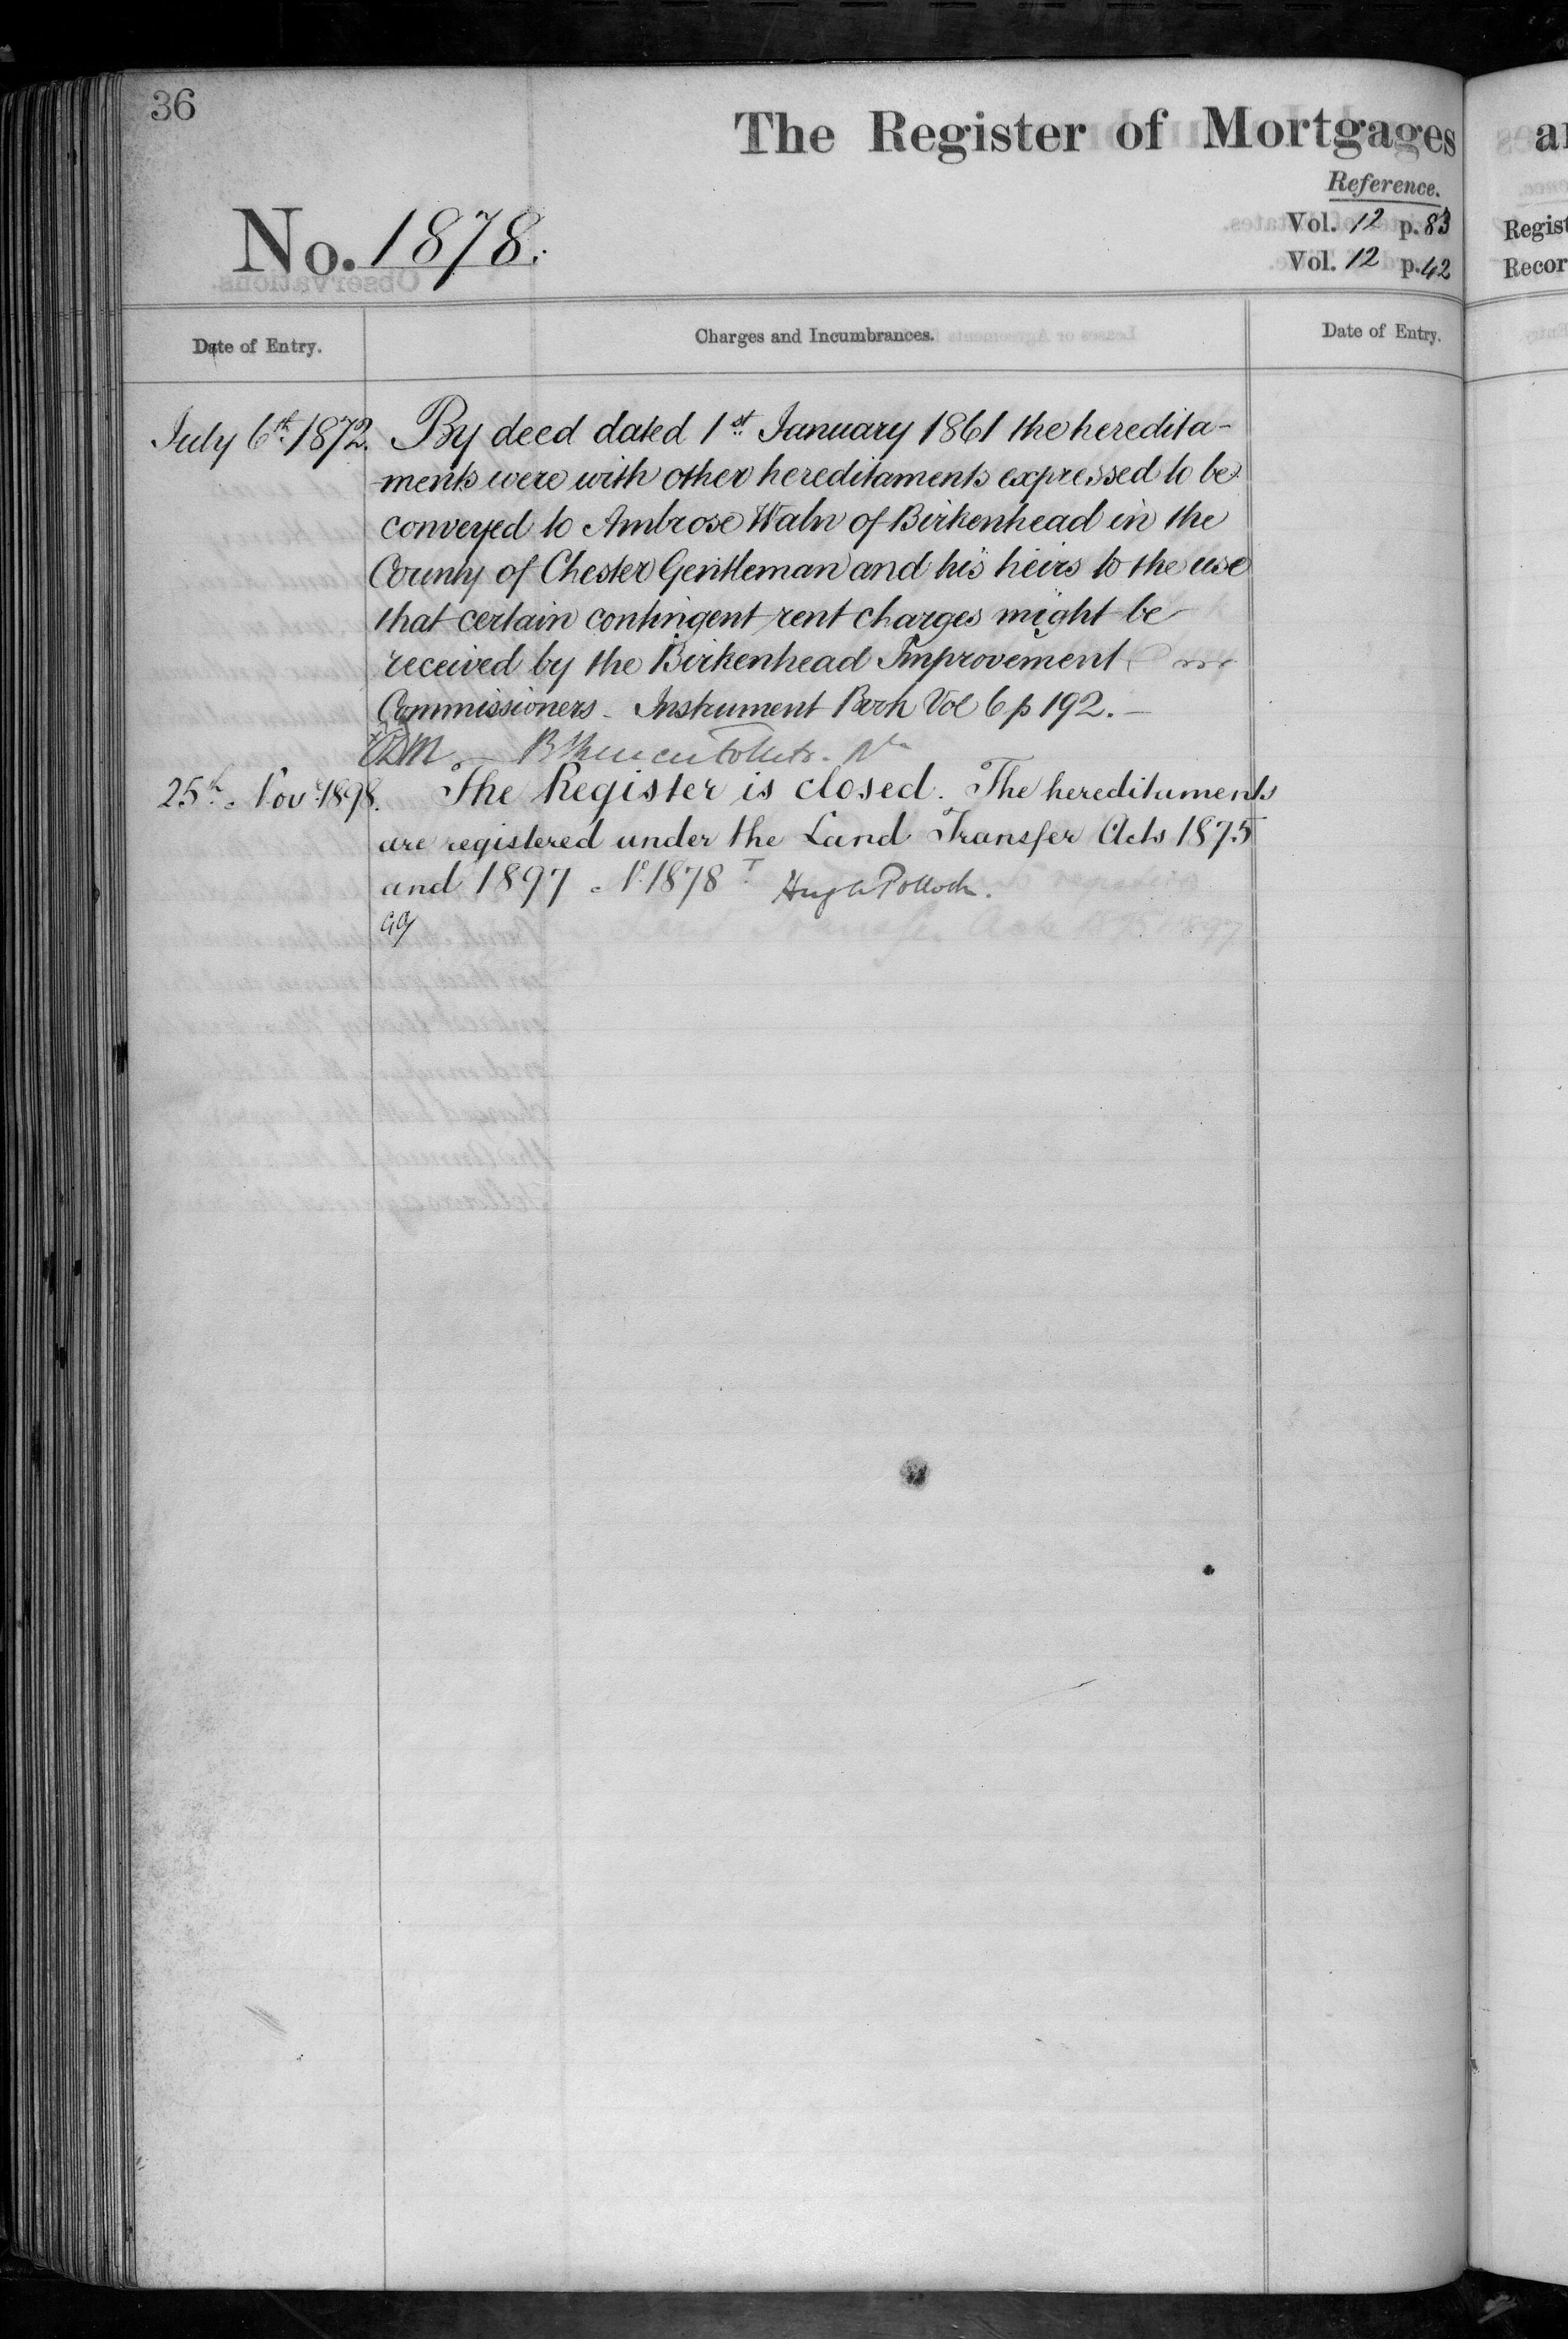 36
The Register of Mortgages
Reference.
No. 1878.
Vol. 12 p. 83
Vol. 12 p. 42
Regist
Recor
Date of Entry.
Charges and Incumbrances.
Date of Entry.
July 6th 1872.
By deed dated 1st January 1861 the heredita-
-ments were with other hereditaments expressed to be
conveyed to Ambrose Waln of Birkenhead in the
County of Chester Gentleman and his heirs to the use
that certain contingent rent charges might be
received by the Birkenhead Improvement
Commissioners. Instrument Book Vol 6 p 192.
25th Nov 1898.
The Register is closed. The hereditaments
are registered under the Land Transfer Acts 1875
and 1897. No 1878 T Hugh Pollock.